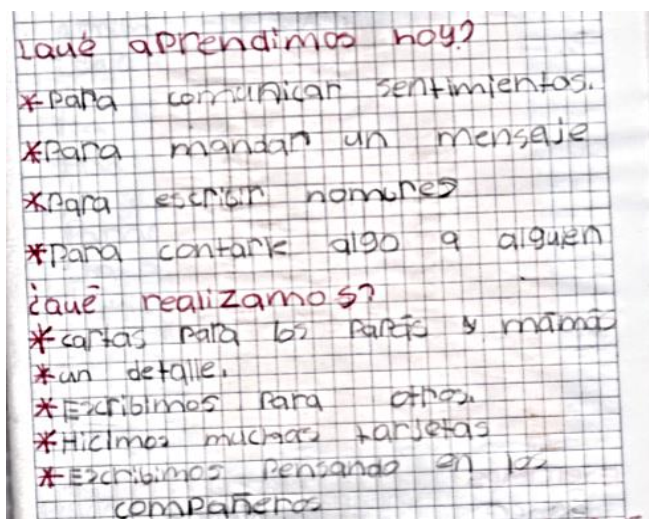 ¿qué aprendimos hoy?
*para comunicar sentimientos.
*para mandar un mensaje
*para escribir nombres
*para contarle algo a alguien
¿qué realizamos?
*cartas para los papás y mamás
*un detalle.
*Escribimos para otros.
*Hicimos muchas tarjetas
*Escribimos pensando en los
compañeros